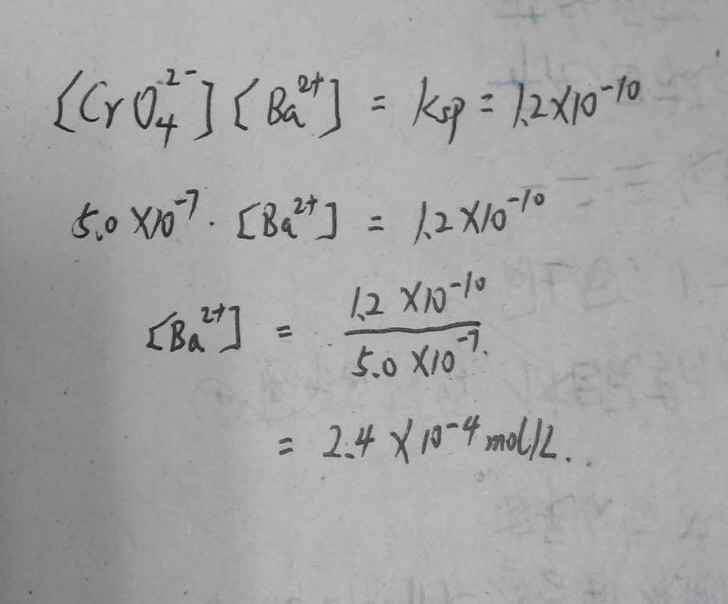 [CrO₄²⁻][Ba²⁺] = Ksp = 1.2×10⁻¹⁰
5.0×10⁻⁷·[Ba²⁺] = 1.2×10⁻¹⁰
[Ba²⁺] = 1.2×10⁻¹⁰ / 5.0×10⁻⁷
= 2.4×10⁻⁴ mol/L.